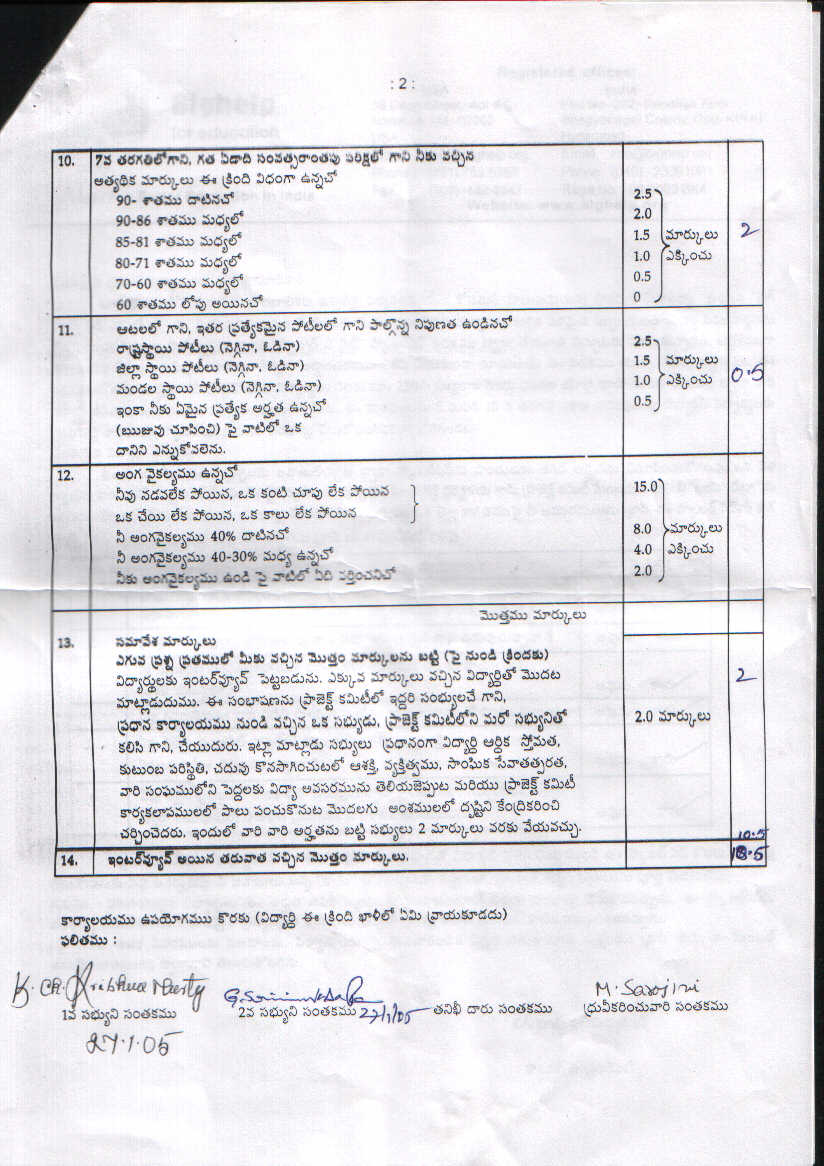 : 2 :
10. 7వ తరగతిలోగాని, గత ఏడాది సంవత్సరాంతపు పరిక్షలో గాని నీకు వచ్చిన
అత్యధిక మార్కులు ఈ క్రింది విధంగా ఉన్నచో
90- శాతము దాటినచో 2.5
90-86 శాతము మధ్యలో 2.0
85-81 శాతము మధ్యలో 1.5 మార్కులు 2
80-71 శాతము మధ్యలో 1.0 ఎక్కించు
70-60 శాతము మధ్యలో 0.5
60 శాతము లోపు అయినచో 0
11. ఆటలలో గాని, ఇతర ప్రత్యేకమైన పోటీలలో గాని పాల్గొన్న నిపుణత ఉండినచో
రాష్ట్రస్థాయి పోటీలు (నెగ్గినా, ఓడినా) 2.5
జిల్లా స్థాయి పోటీలు (నెగ్గినా, ఓడినా) 1.5 మార్కులు
మండల స్థాయి పోటీలు (నెగ్గినా, ఓడినా) 1.0 ఎక్కించు 0.5
ఇంకా నీకు ఏమైన ప్రత్యేక అర్హత ఉన్నచో 0.5
(ఋజువు చూపించి) పై వాటిలో ఒక
దానిని ఎన్నుకోవలెను.
12. అంగ వైకల్యము ఉన్నచో
నీవు నడవలేక పోయిన, ఒక కంటి చూపు లేక పోయిన 15.0
ఒక చేయి లేక పోయిన, ఒక కాలు లేక పోయిన
నీ అంగవైకల్యము 40% దాటినచో 8.0 మార్కులు
నీ అంగవైకల్యము 40-30% మధ్య ఉన్నచో 4.0 ఎక్కించు
నీకు అంగవైకల్యము ఉండి పై వాటిలో ఏది వర్తించనిచో 2.0
మొత్తము మార్కులు
13. సమావేశ మార్కులు
ఎగువ ప్రశ్న ప్రతములో మీకు వచ్చిన మొత్తం మార్కులను బట్టి (పై నుండి క్రిందకు)
విద్యార్థులకు ఇంటర్‌వ్యూవ్ పెట్టబడును. ఎక్కువ మార్కులు వచ్చిన విద్యార్థితో మొదట 2
మాట్లాడుదుము. ఈ సంభాషణను ప్రాజెక్ట్ కమిటీలో ఇద్దరి సంభ్యులచే గాని,
ప్రధాన కార్యాలయము నుండి వచ్చిన ఒక సభ్యుడు, ప్రాజెక్ట్ కమిటీలోని మరో సభ్యునితో 2.0 మార్కులు
కలిసి గాని, చేయుదురు. ఇట్లా మాట్లాడు సభ్యులు ప్రధానంగా విద్యార్థి ఆర్థిక స్తోమత,
కుటుంబ పరిస్థితి, చదువు కొనసాగించుటలో ఆశక్తి, వ్యక్తిత్వము, సాంఘిక సేవాతత్పరత,
వారి సంఘములోని పెద్దలకు విద్యా అవసరమును తెలియజెప్పుట మరియు ప్రాజెక్ట్ కమిటీ
కార్యకలాపములలో పాలు పంచుకొనుట మొదలగు అంశములలో దృష్టిని కేంద్రికరించి
చర్చించెదరు. ఇందులో వారి వారి అర్హతను బట్టి సభ్యులు 2 మార్కులు వరకు వేయవచ్చు.
10.5
14. ఇంటర్‌వ్యూవ్ అయిన తరువాత వచ్చిన మొత్తం మార్కులు.
కార్యాలయము ఉపయోగము కొరకు (విద్యార్థి ఈ క్రింది ఖాళీలో ఏమి వ్రాయకూడదు)
ఫలితము :
K. Ch. Krishna Murty M. Sarojini
1వ సభ్యుని సంతకము 2వ సభ్యుని సంతకము 27/1/05 తనిఖీ దారు సంతకము ధ్రువీకరించువారి సంతకము
27.1.05